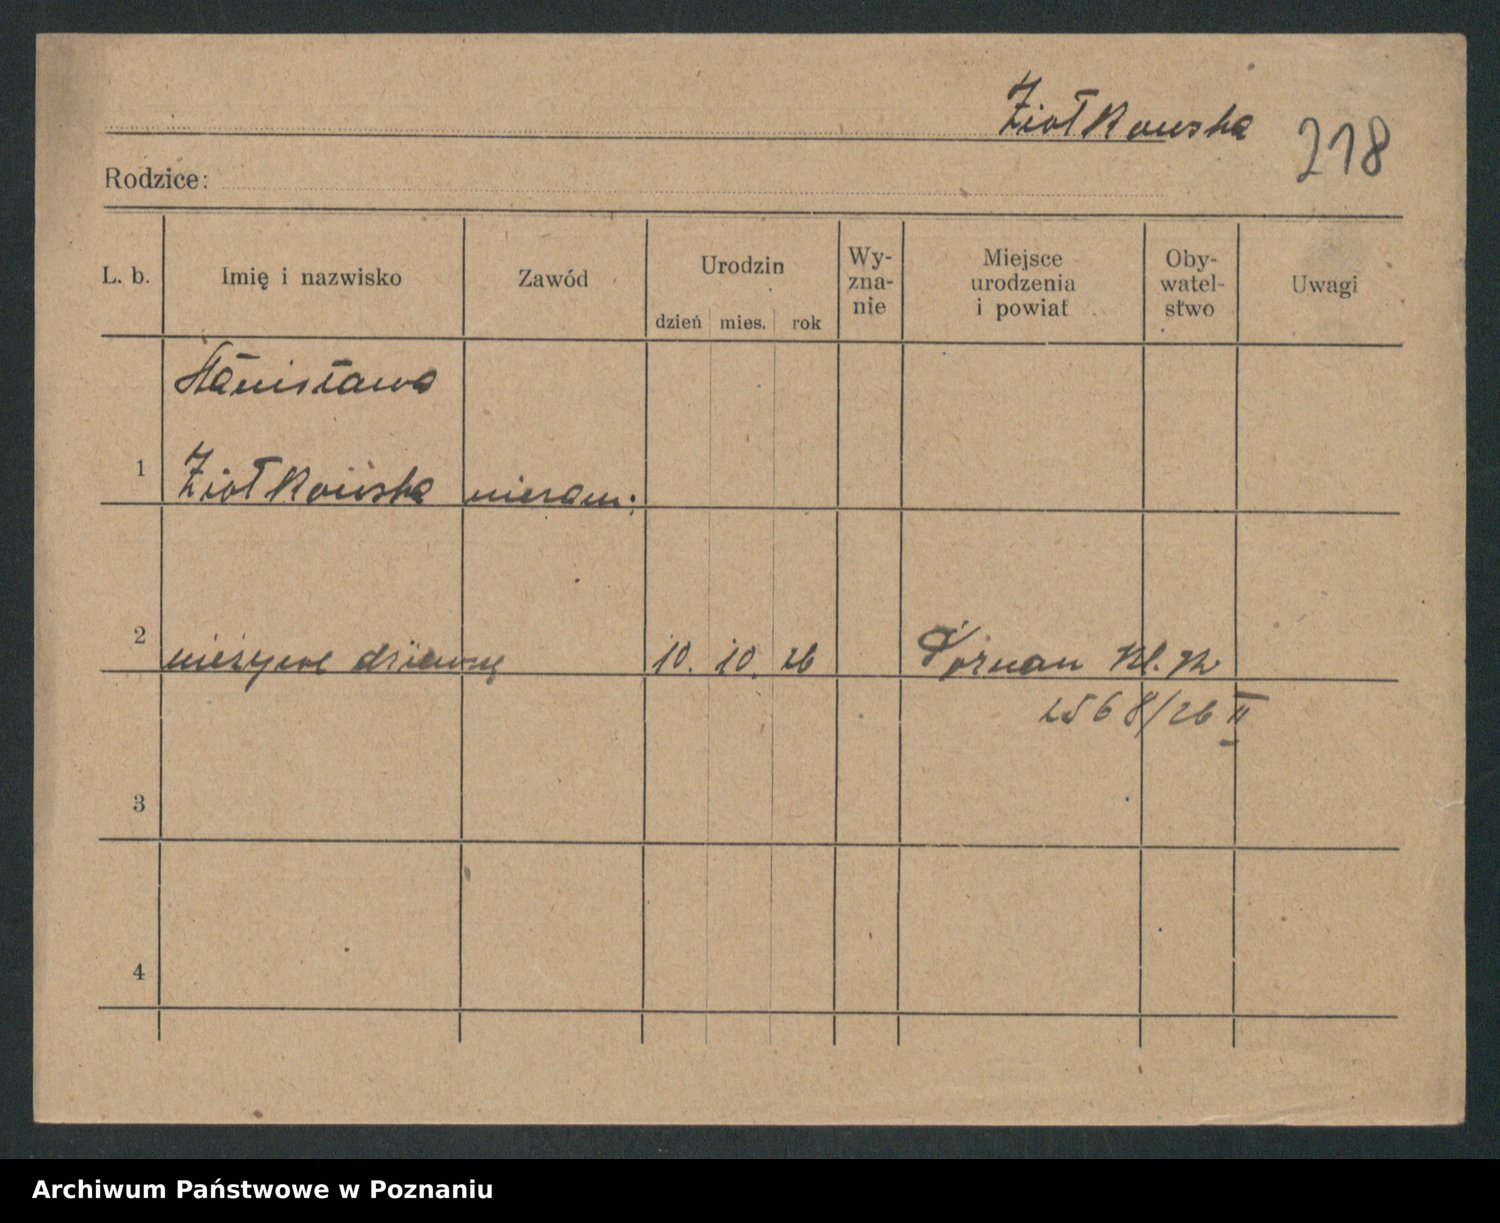 Ziołkowska 218
Rodzice:
L. b. Imię i nazwisko Zawód Urodzin dzień mies. rok Wy-zna-nie Miejsce urodzenia i powiat Oby-watel-stwo Uwagi
Stanisława
1 Ziołkowska niezam:
2 nieżywe dziewczę 10. 10. 26 Poznań Kl.
2568/26 II
3
4
Archiwum Państwowe w Poznaniu